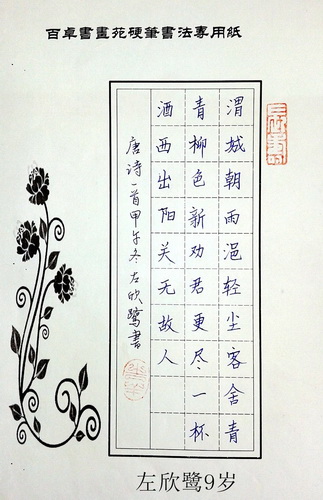 百卓書畫苑硬筆書法專用紙
渭城朝雨浥轻尘客舍青
青柳色新劝君更尽一杯
酒西出阳关无故人
唐诗一首甲午冬左欣鹭書
左欣鹭9岁